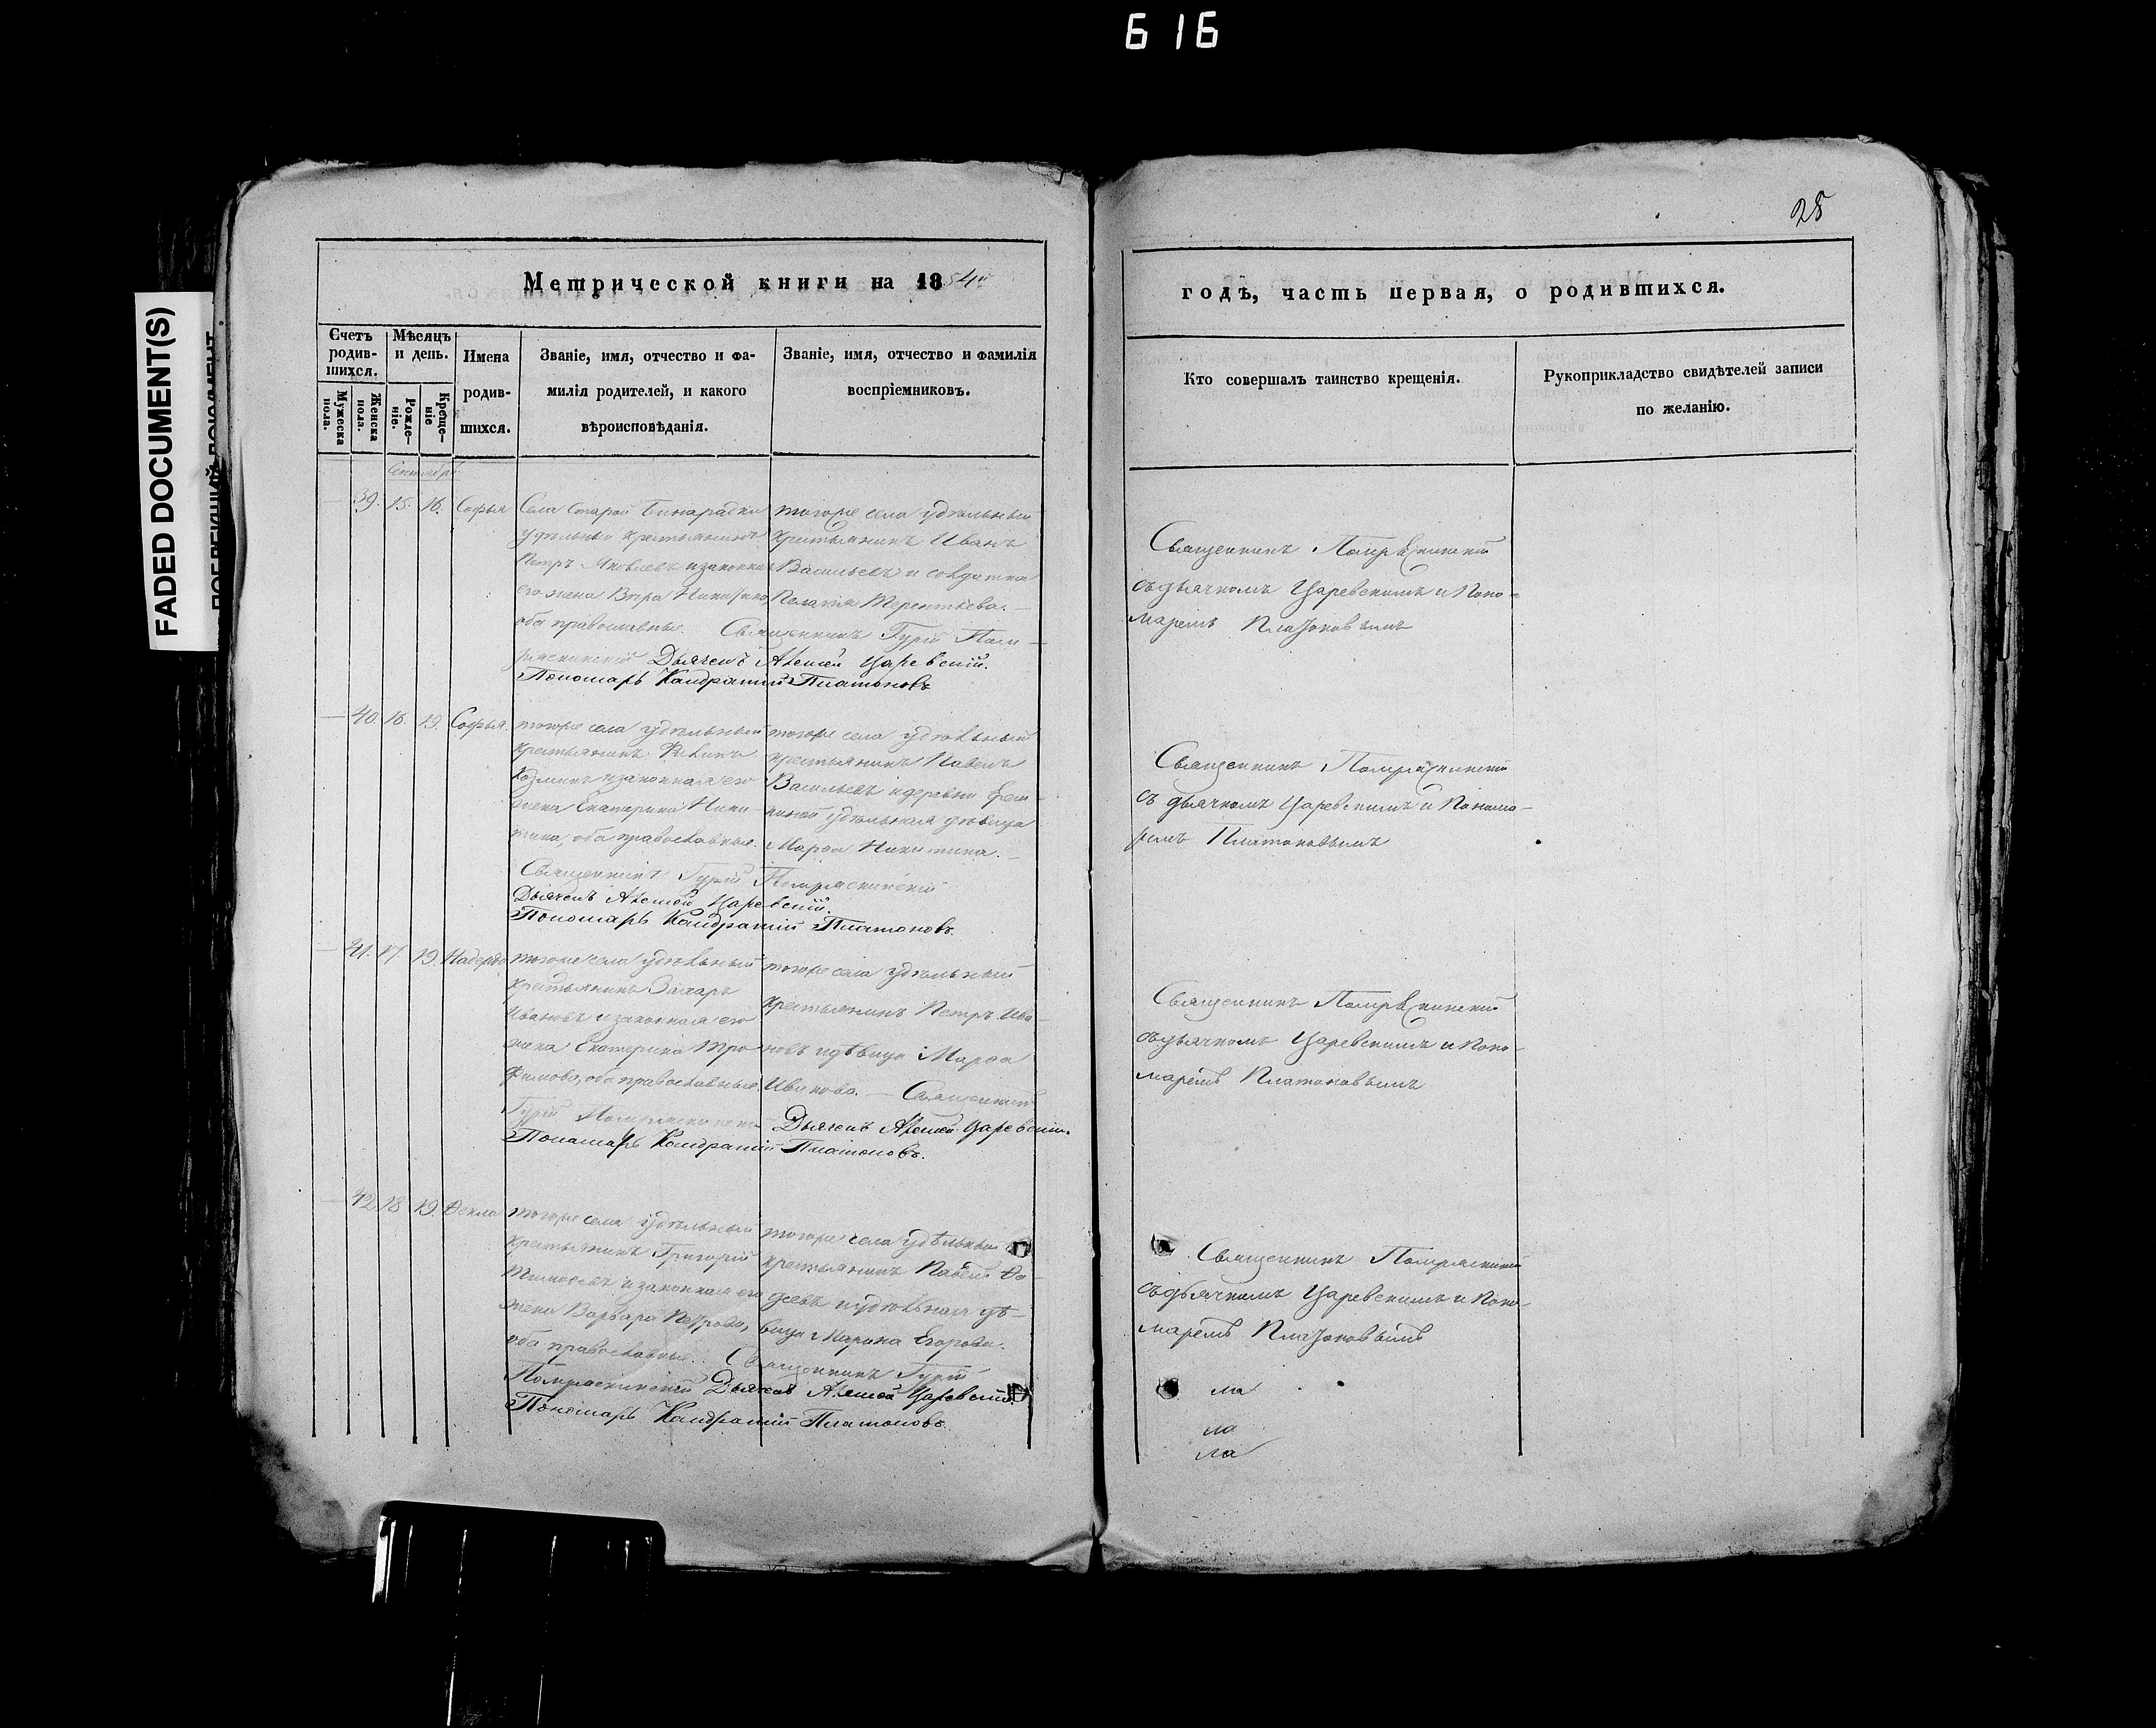 616
FADED DOCUMENT(S)
28
Метрической книги на 1854й
годъ, часть первая, о родившихся.
Счетъ родив-шихся.
Мужеска пола.
Женска пола.
Мѣсяцъ и день.
Рожде-ніе.
Креще-ніе
Имена
родив-
шихся.
Званіе, имя, отчество и фа-
милія родителей, и какого
вѣроисповѣданія.
Званіе, имя, отчество и фамилія
воспріемниковъ.
Кто совершалъ таинство крещенія.
Рукоприкладство свидѣтелей записи
по желанію.
Сентябрь
39. 15. 16. Софья
Села Старой Бинарадки
удѣльный крестьянинъ
Петръ Яковлевъ и законная
его жена Вѣра
оба православные.
тогоже села удѣльный
крестьянинъ Иванъ
Васильевъ и солдатка
Пелагія Терентьева.
Священникъ Гурій Пом-
ряскинскій Дьячекъ Алексѣй Царевскій.
Пономарь Кондратій Платоновъ
Священникъ Помряскинскій
съ дьячкомъ Царевскимъ и Поно-
маремъ Платоновымъ
40. 16. 19. Софья
тогоже села удѣльный
крестьянинъ
Козминъ и законная его
жена Екатерина Ники-
тина, оба православные.
тогоже села удѣльный
крестьянинъ Павелъ
Васильевъ и деревни
удѣльная дѣвица
Марѳа Никитина.
Священникъ Гурій Помряскинскій
Дьячекъ Алексѣй Царевскій.
Пономарь Кондратій Платоновъ.
Священникъ Помряскинскій
съ дьячкомъ Царевскимъ и Понома-
ремъ Платоновымъ
41. 17. 19. Надежда
тогоже села удѣльный
крестьянинъ Захаръ
Ивановъ и законная его
жена Екатерина Тро-
фимова, оба православные.
тогоже села удѣльный
крестьянинъ Петръ Ива-
новъ и дѣвица Марѳа
Иванова. — Священникъ
Гурій Помряскинскій Дьячекъ Алексѣй Царевскій.
Пономарь Кондратій Платоновъ.
Священникъ Помряскинскій
съ дьячкомъ Царевскимъ и Поно-
маремъ Платоновымъ
42. 18. 19. Ѳекла
тогоже села удѣльный
крестьянинъ Григорій
Тимоѳевъ и законная его
жена Варвара Петрова,
оба православные.
тогоже села удѣльный
крестьянинъ Павелъ Ѳа-
деевъ и удѣльная дѣ-
вица Марина Егорова.
Священникъ Гурій
Помряскинскій Дьячекъ Алексѣй Царевскій.
Пономарь Кондратій Платоновъ.
Священникъ Помряскинскій
съ дьячкомъ Царевскимъ и Поно-
маремъ Платоновымъ
ла
ла
ла